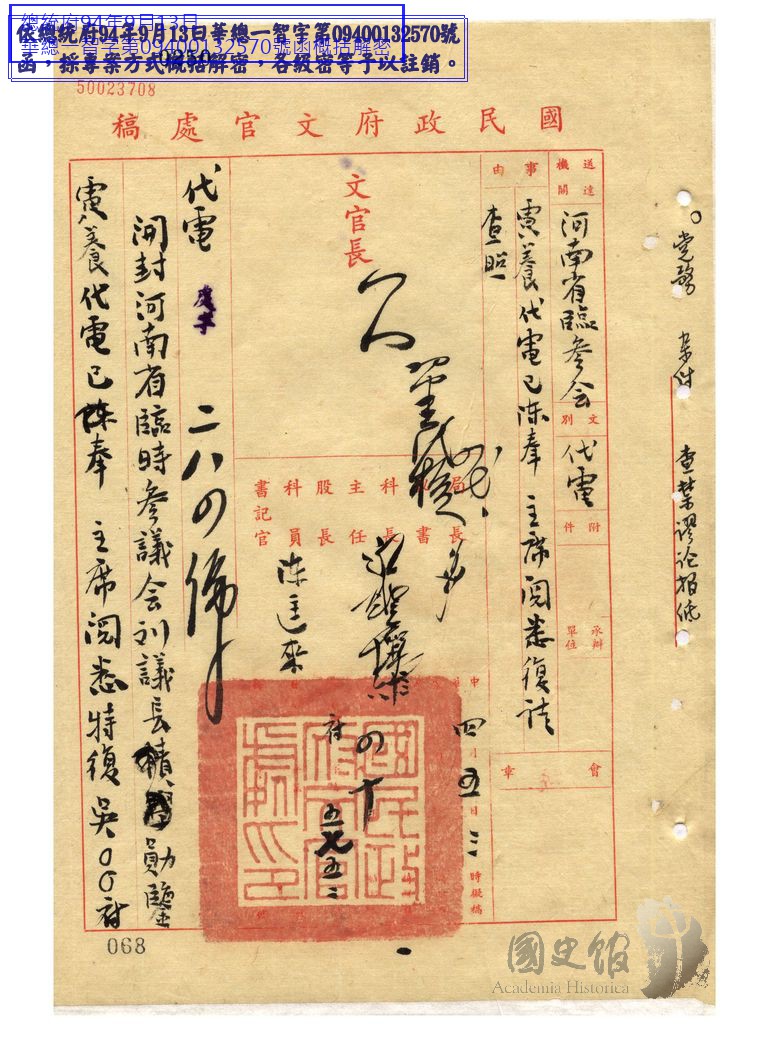 依總統府94年9月13日華總一智字第09400132570號
函，採專案方式概括解密，各級密等予以註銷。
總統府94年9月13日
華總一智字第09400132570號函概括解密
50023708
國民政府文官處稿
送達機關
河南省臨參会
文別
代電
附件
承辦單位
事由
電八養代電已陳奉 主席閱悉復請
查照
會章
文官長
局長
秘書
科長
主任
股長
科員
書記官
陳匡來
四 五 三
時擬稿
國民政府文官處印
代電
二八〇號
開封河南省臨時參議会刘議長積勛鑒
電八養代電已陳奉 主席閱悉特復吳〇〇府
党務 案件 查禁謬论报纸
068
國史館
Academia Historica